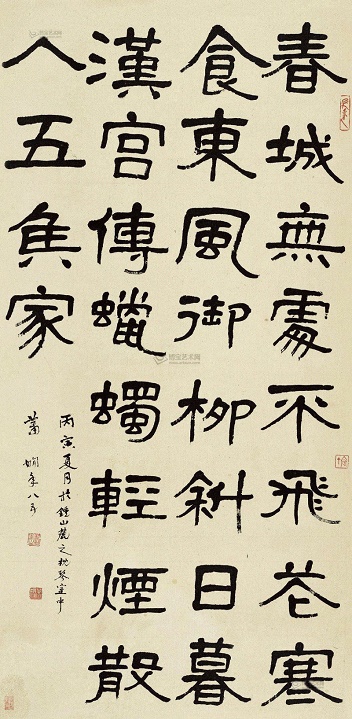 春城無處不飛花寒
食東風御柳斜日暮
漢宮傳蠟蠋輕煙散
入五侯家
丙寅夏月於鍾山麓之枕琴室中
蕭嫻年八五
博宝艺术网